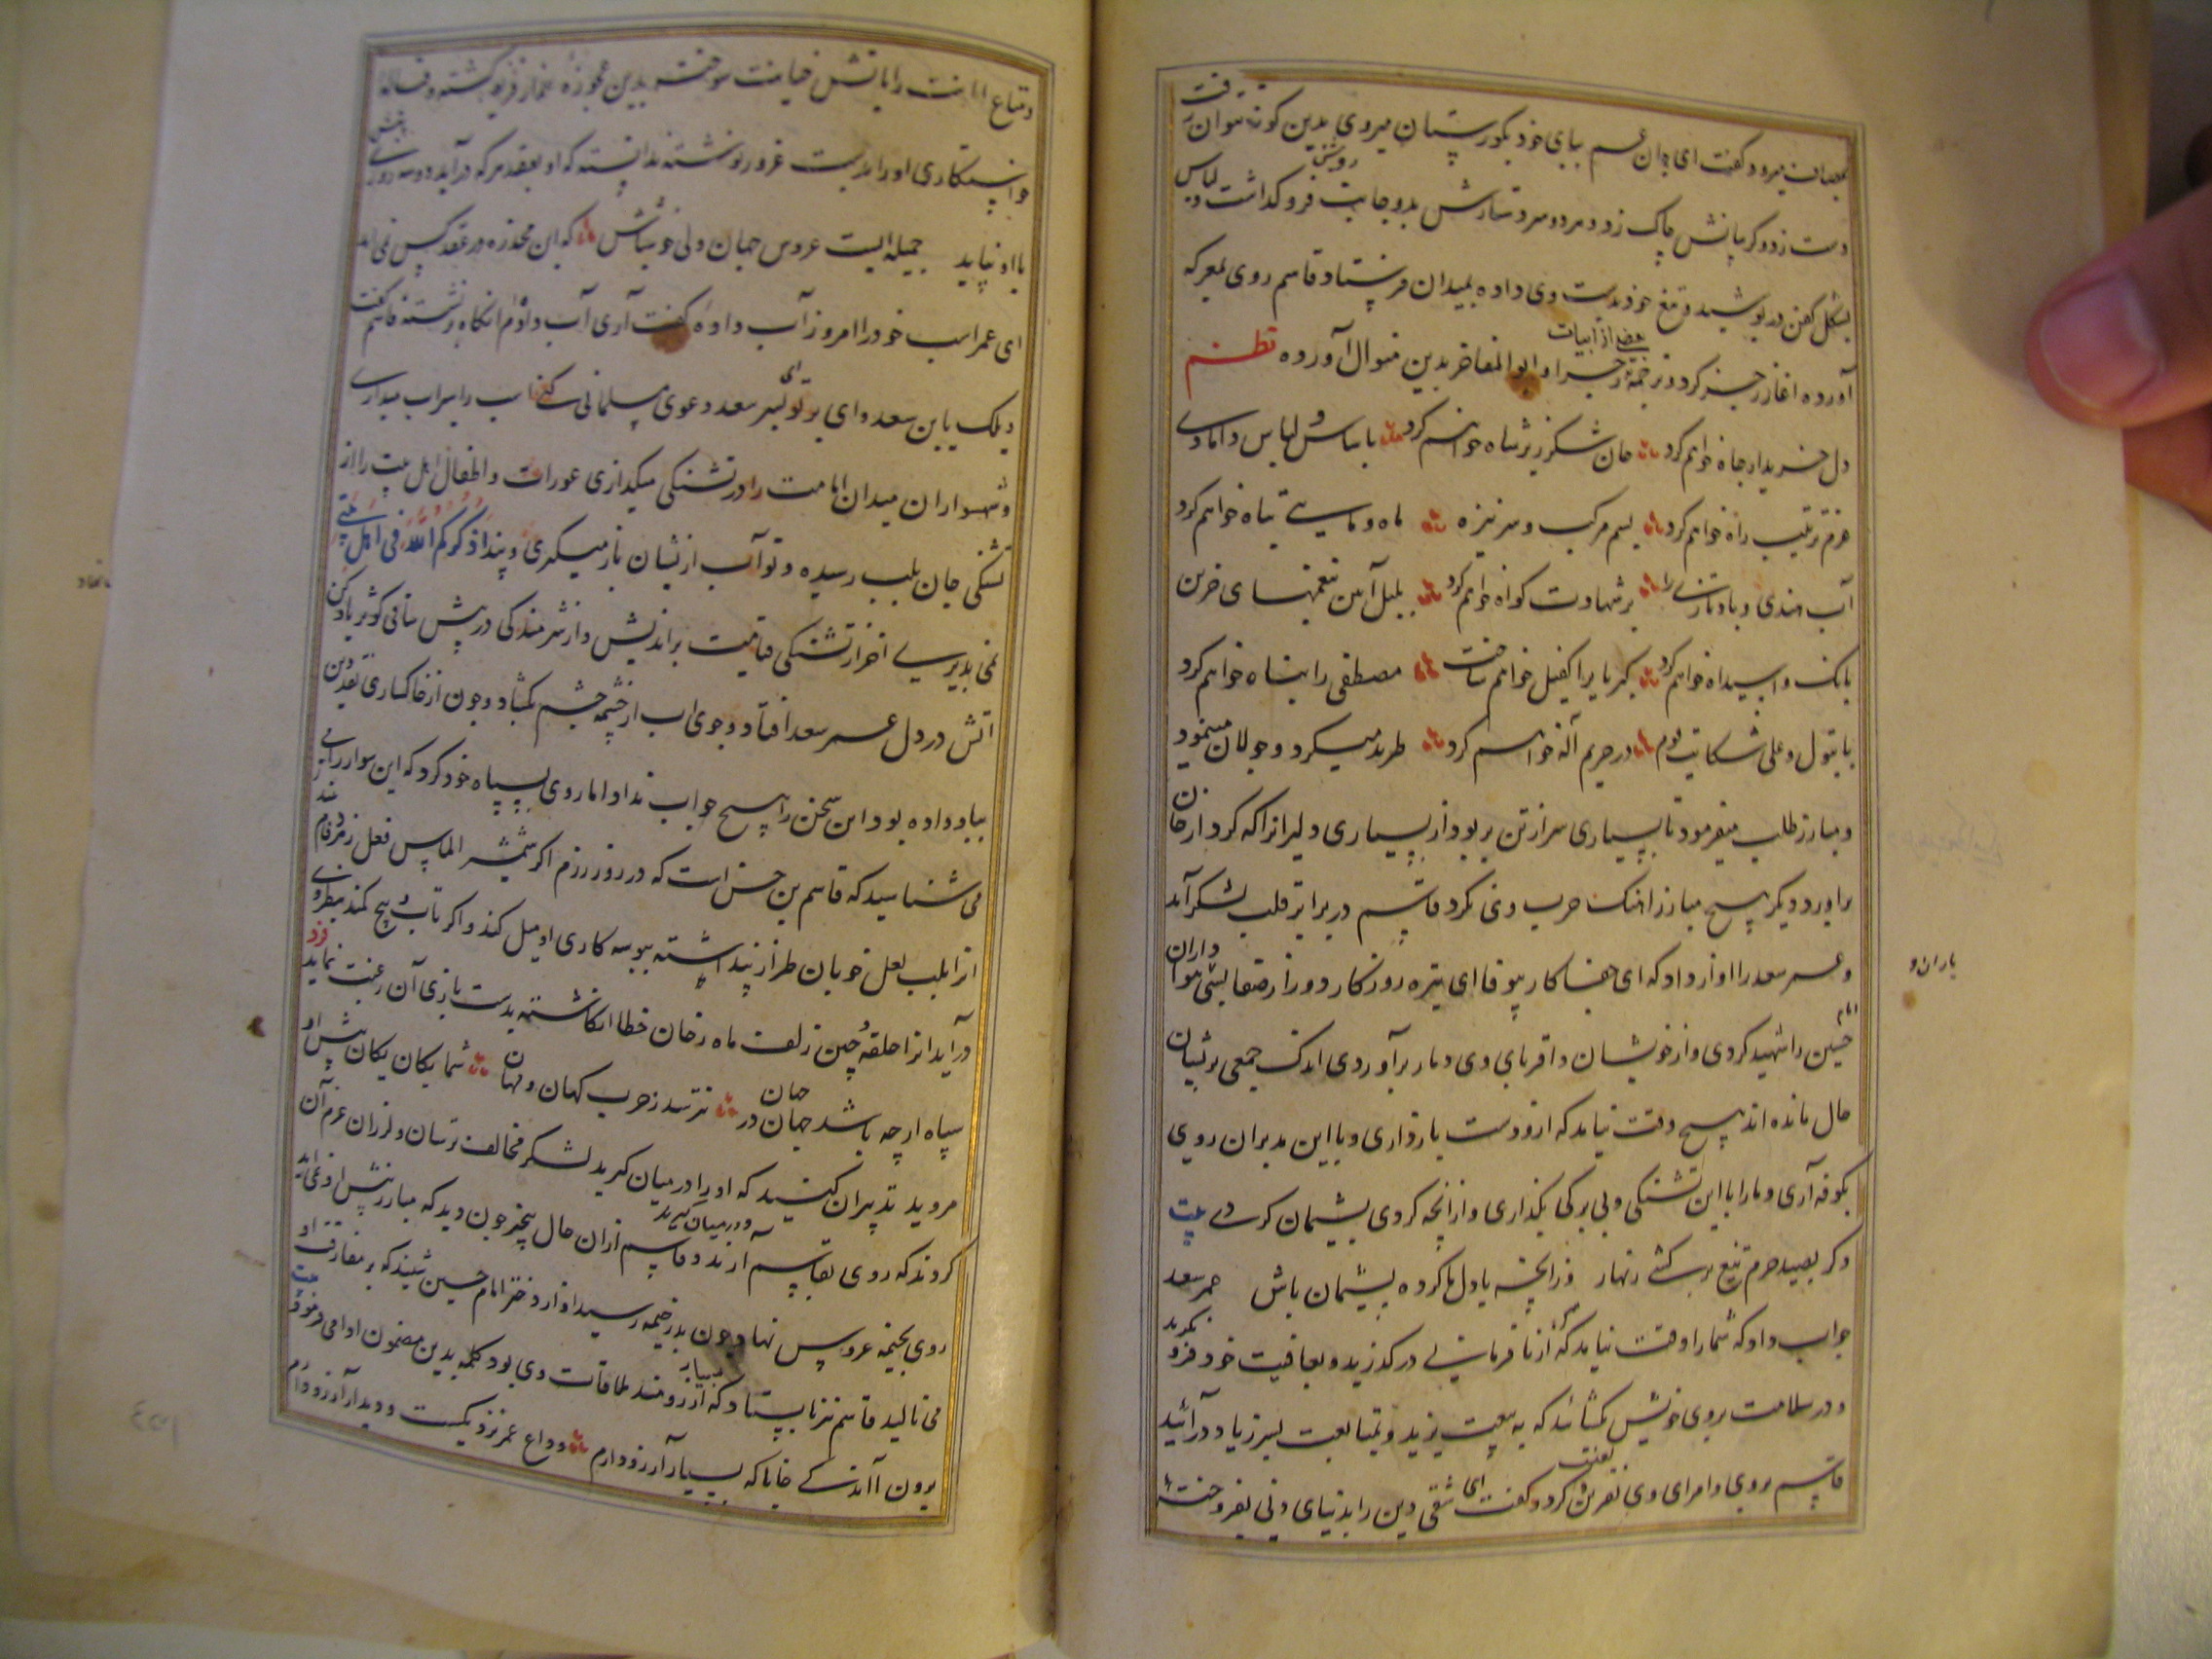 میرود گفت ای جان عم بپای خود بگورستان میروی بدین گونه نتوان رفت
دست زد و گریبانش چاک زد و هر دو سر دستارش بدو جانب روش فرو گذاشت و لباس
بشکل کفن در پوشید و تیغ خود بدست وی داده بمیدان فرستاد قاسم روی بمعرکه
آورده آغاز رجز کرد و ترجمه رجز او بعضی از ابیات ابو المفاخر بدین منوال آورده نظم
دل خریدار جاه خواهم کرد جان شکر ریز شاه خواهم کرد با لباس دامادی
عزم ترتیب راه خواهم کرد بسم مرکب و سر نیزه ماه و ماهی تباه خواهم کرد
آب هندی و باد تازی را بر شهادت گواه خواهم کرد بلبل آئین نغمهای حزین
بانگ وا سیداه خواهم کرد کبریا را کفیل خواهم ساخت مصطفی را پناه خواهم کرد
با بتول و علی شکایت قوم در حریم اله خواهم کرد طرید میکرد و جولان مینمود
و مبارز طلب میفرمود تا بسیاری سر از تن بربود از بسیاری دلیرانرا که گرد از جان
برآورد و دیگر هیچ مبارز آهنگ حرب وی نکرد قاسم در برابر قلب لشکر آمد
و عمر سعد را آواز داد که ای جفاکار بیوفا ای تیره روزگار دور از صفا بسی هواداران
یاران و
امام حسین را شهید کردی و از خویشان و اقربای وی دمار برآوردی اندک جمعی پریشان
حال مانده اند هیچ وقت نیامد که از دست بازداری و با این مدبران روی
بکوفه آری و ما را با این تشنگی و بی برگی بگذاری و از آنچه کردی پشیمان گردی بیت
وگر بصید حرم تیغ برکشی زنهار وز آنچه با دل ما کرده پشیمان باش عمر سعد
جواب داد که شما را وقت نیامد که از نافرمانی درگذرید و بعافیت خود فرو نگرید
و در سلامت بروی خویش بگشائید که به بیعت یزید و متابعت پسر زیاد درآئید
قاسم بروی و امرای وی نفرین لعنت کرد و گفت ای شقی دین را بدنیای دنی بفروخته
و متاع امانت را بآتش خیانت سوخته بدین عجوزه غدار فریفته گشته و قباله
خواستگاری او را بدست غرور نوشته ندانسته که او بعقد هرکه درآید دو سه روزی بیش
با او نپاید جمیله ایست عروس جهان ولی خوش باش که این مخدره در عقد کس نمی آید
ای عمر اسب خود را امروز آب داده گفت آری آب دادم آنگاه برنشسته قاسم گفت
ویلک یا بن سعد وای بر تو ای پسر سعد دعوی مسلمانی کنی اسب را سیراب میداری
و شهسواران میدان امامت را در تشنگی میگذاری عورات و اطفال اهل بیت را از
تشنگی جان بلب رسیده و تو آب ازیشان باز میگیری و پند اذکرکم الله فی اهل بیتی
نمی پذیری آخر از تشنگی قیامت براندیش و از شرمندگی در پیش ساقی کوثر یاد کن
آتش در دل عمر سعد افتاد و جوی آب از چشمه چشم بگشاد و چون از خاکساری نقد دین
بباد داده بود این سخن را هیچ جواب نداد اما روی بسپاه خود کرد که این سوار را
می شناسید که قاسم بن حسن است که در روز رزم اگر شمشیر الماس فعل زمرد فام
آنرا بلب لعل خوبان طراز پنداشته ببوسه کاری او میل کند و اگر تاب و پیچ کمند بنظر وی
درآید آنرا حلقه چین زلف ماه رخان خطا انگاشته بدست بازی آن رغبت نماید فرد
سپاه ار چه باشد جهان در جهان نترسد ز حرب کهان و مهان شما یکان یکان پیش او
مروید تدبیر آن کنید که او را در میان گیرید لشکر مخالف ترسان و لرزان عزم آن
کردند که روی بقاسم آرند و در میان گیرند و قاسم ازان حال بیخبر چون دید که مبارز پیش او نمی آید
روی بخیمه عروس نهاد چون بدر خیمه رسید آواز دختر امام حسین شنید که بر مفارقت او
می نالید قاسم نیز بایستاد که آرزومند ملاقات وی بود کلمه بدین مضمون ادا می فرمود بیت
برون آ اندکی جانا که بسیار آرزو دارم وداع عمر نزدیکست و دیدار آرزو دارم